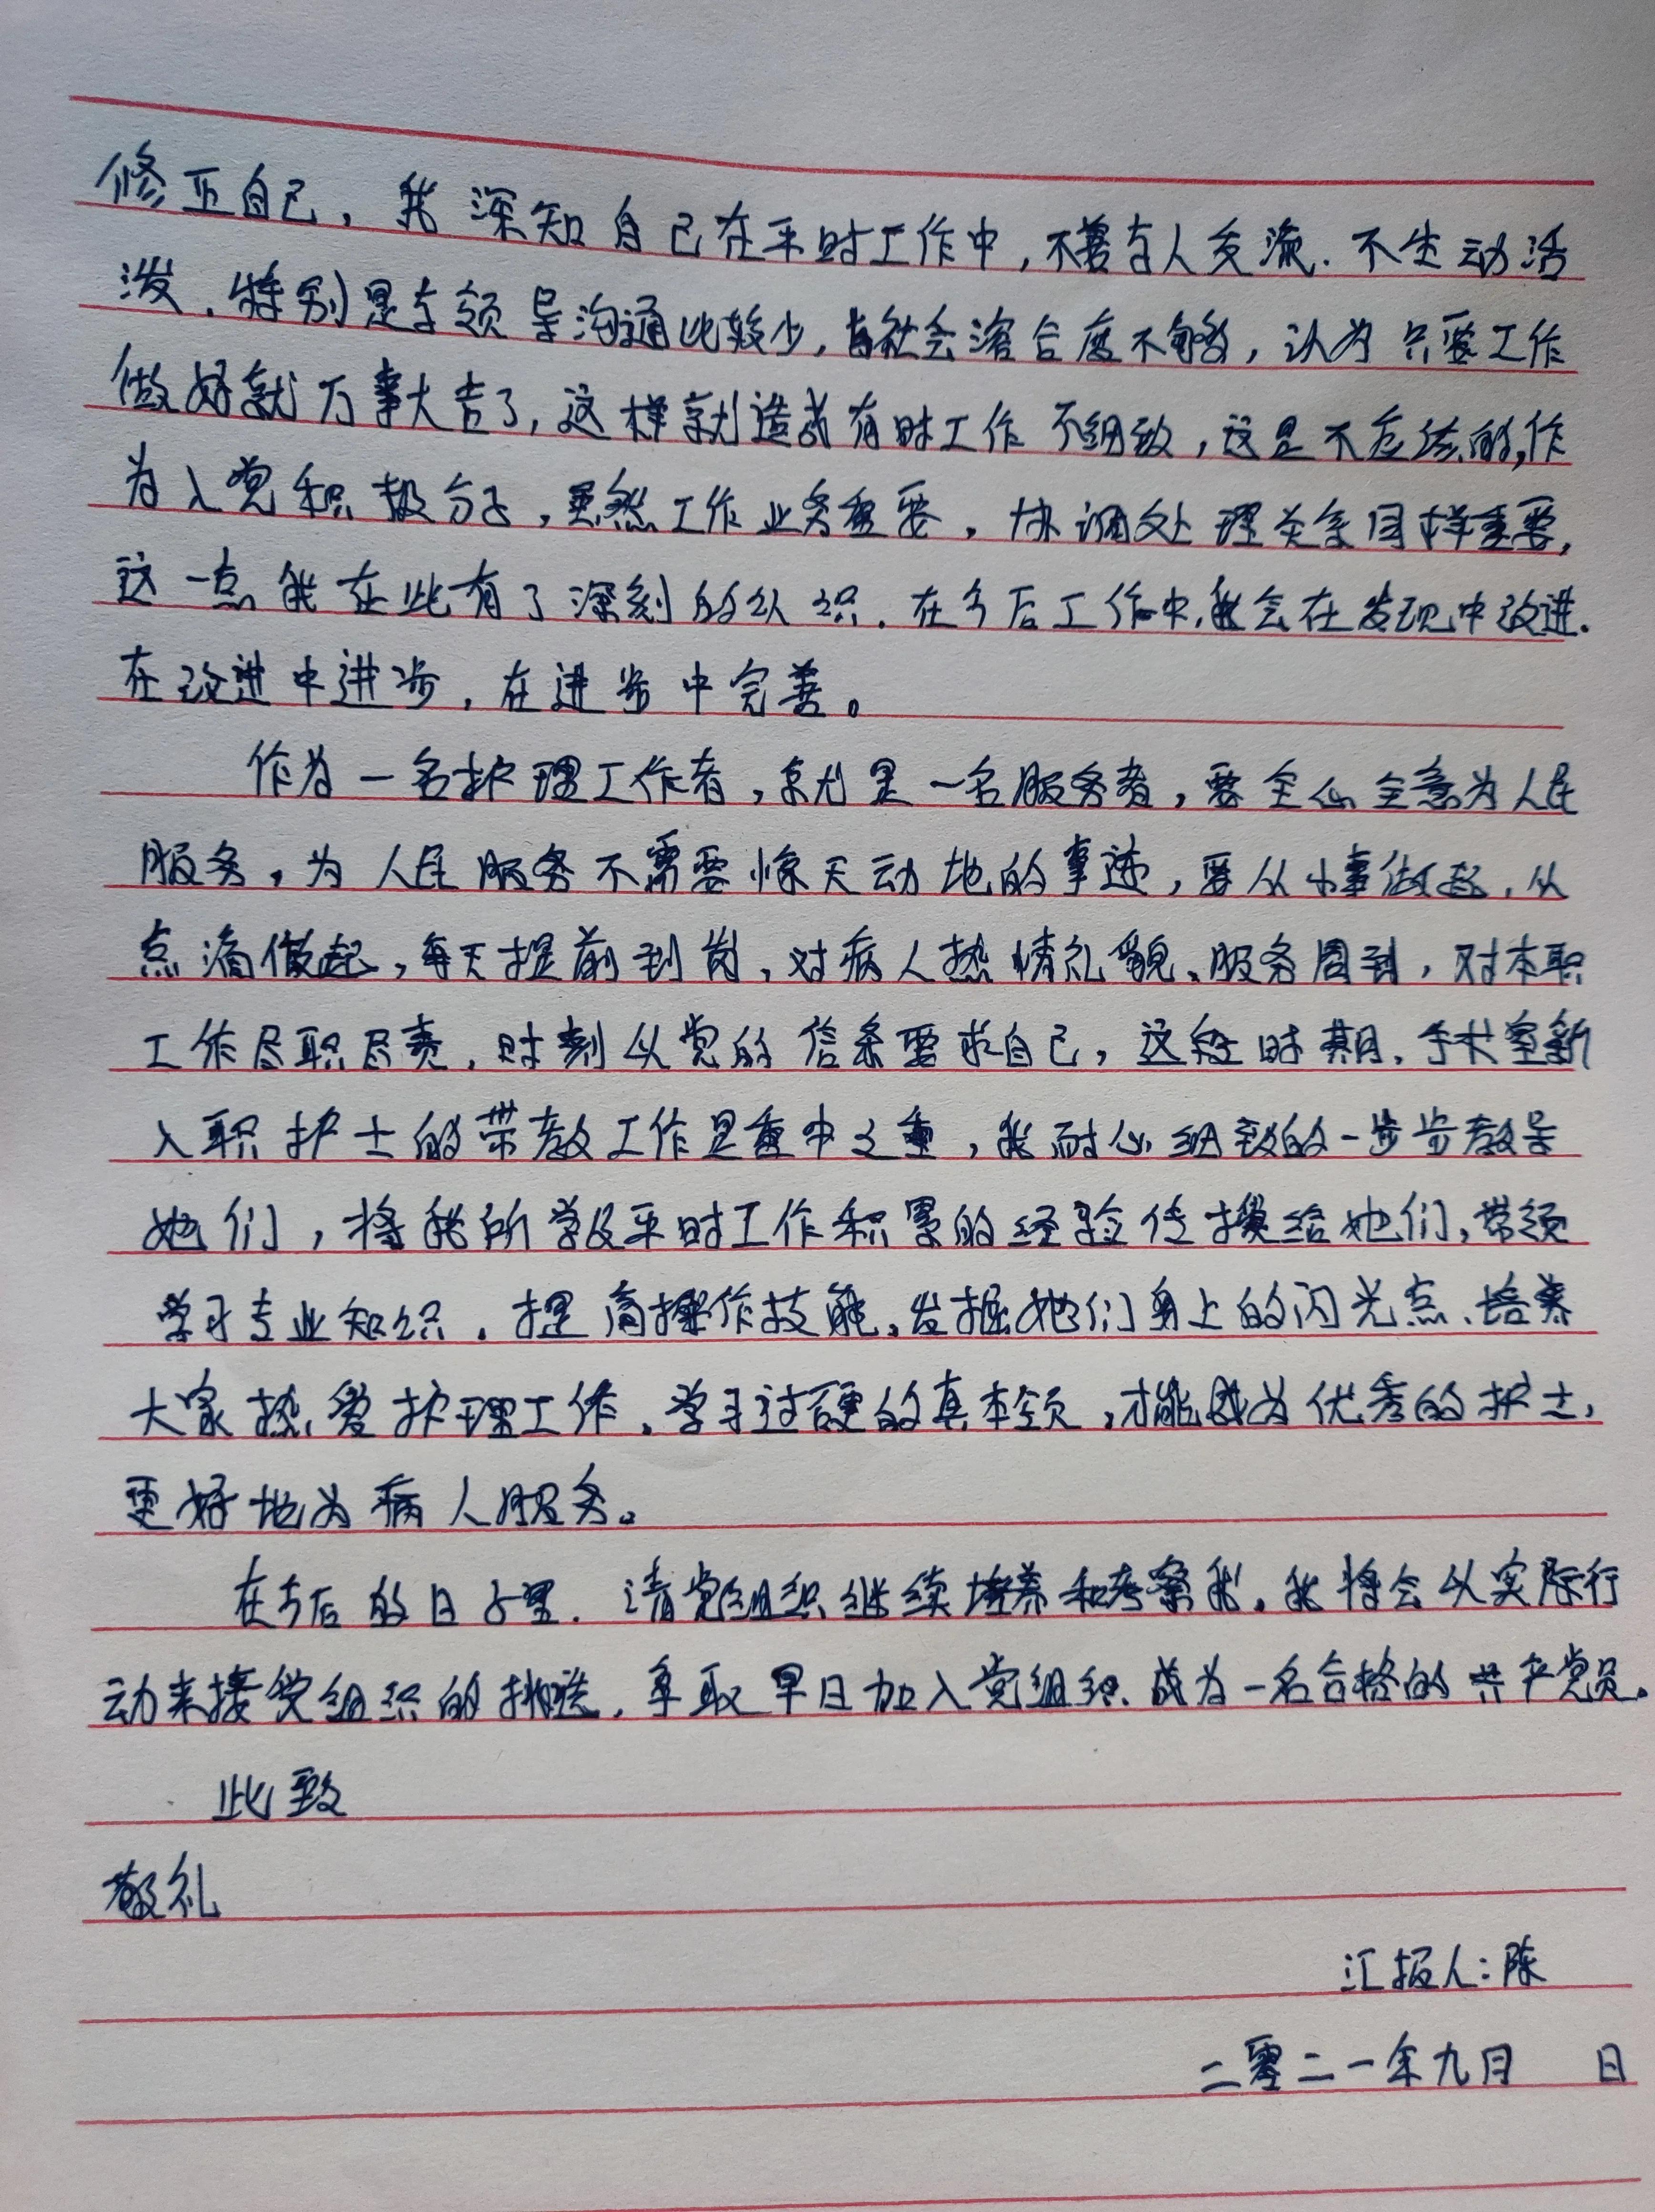 修正自己，我深知自己在平时工作中，不善与人交流．不生动活
泼．特别是与领导沟通比较少，与社会溶合度不够，认为只要工作
做好就万事大吉了，这样就造成有时工作不细致，这是不应该的，作
为入党积极分子，虽然工作业务重要，协调处理关系同样重要，
这一点我在此有了深刻的认识．在今后工作中，我会在发现中改进．
在改进中进步，在进步中完善。
作为一名护理工作者，就是一名服务者，要全心全意为人民
服务，为人民服务不需要惊天动地的事迹，要从小事做起，从
点滴做起，每天提前到岗，对病人热情礼貌、服务周到，对本职
工作尽职尽责，时刻以党的信条要求自己，这段时期，手术室新
入职护士的带教工作是重中之重，我耐心细致的一步步教导
她们，将我所学及平时工作积累的经验传授给她们，带领
学习专业知识．提高操作技能，发掘她们身上的闪光点、培养
大家热爱护理工作，学习过硬的真本领，才能成为优秀的护士，
更好地为病人服务。
在今后的日子里．请党组织继续培养和考察我，我将会以实际行
动来接受组织的挑选，争取早日加入党组织．成为一名合格的共产党员。
此致
敬礼
汇报人：陈
二零二一年九月 日